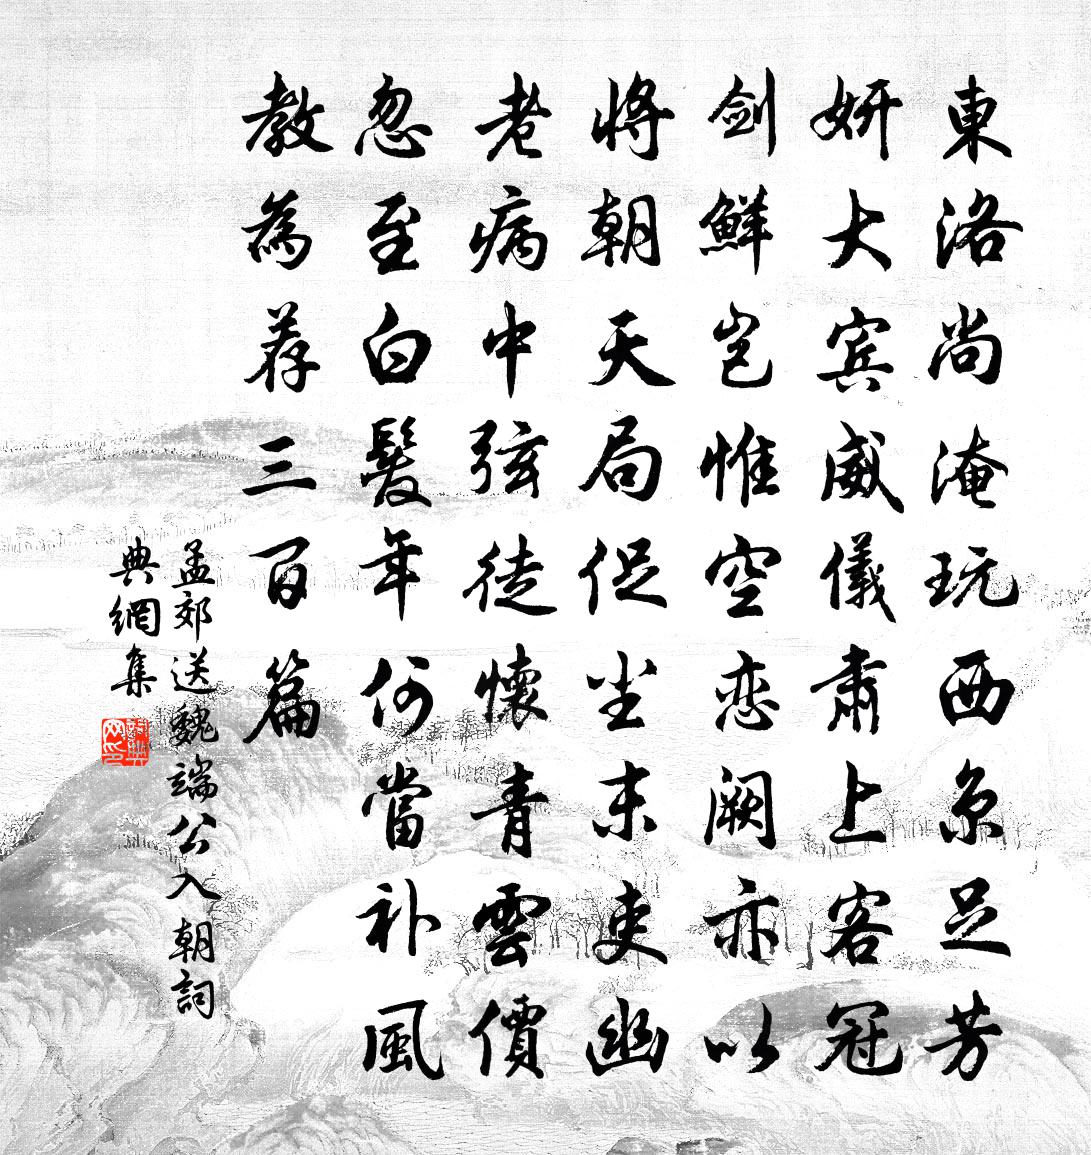 東洛尚淹玩西京足芳
妍大賓威儀肅上客冠
劍鮮豈惟空恋闕亦以
將朝天局促尘末吏幽
老病中弦徒懷青雲價
忽至白髮年何當补風
教為荐三百篇
孟郊送魏端公入朝詞
典網集
詞典网印